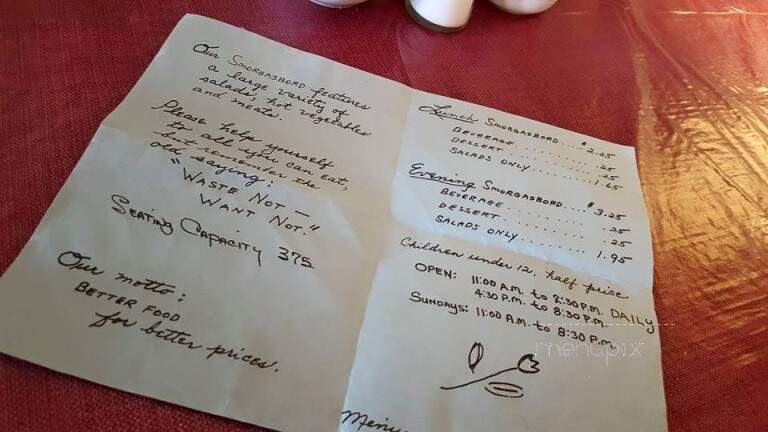 Our SMORGASBORD features
a large variety of
salads, hot vegetables
and meats.
Please help yourself
to all you can eat,
but remember the
old saying:
"WASTE NOT —
WANT NOT."
SEATING CAPACITY 375
Our motto:
BETTER FOOD
for better prices.
Lunch SMORGASBORD.... $2.25
BEVERAGE ............ .25
DESSERT ............ .25
SALADS ONLY......... 1.65
Evening SMORGASBORD... $3.25
BEVERAGE ............ .25
DESSERT............. .25
SALADS ONLY......... 1.95
Children under 12, half price
OPEN: 11:00 A.M. to 2:30 P.M. DAILY
4:30 P.M. to 8:30 P.M.
SUNDAYS: 11:00 A.M. to 8:30 P.M.
menupix
Menu